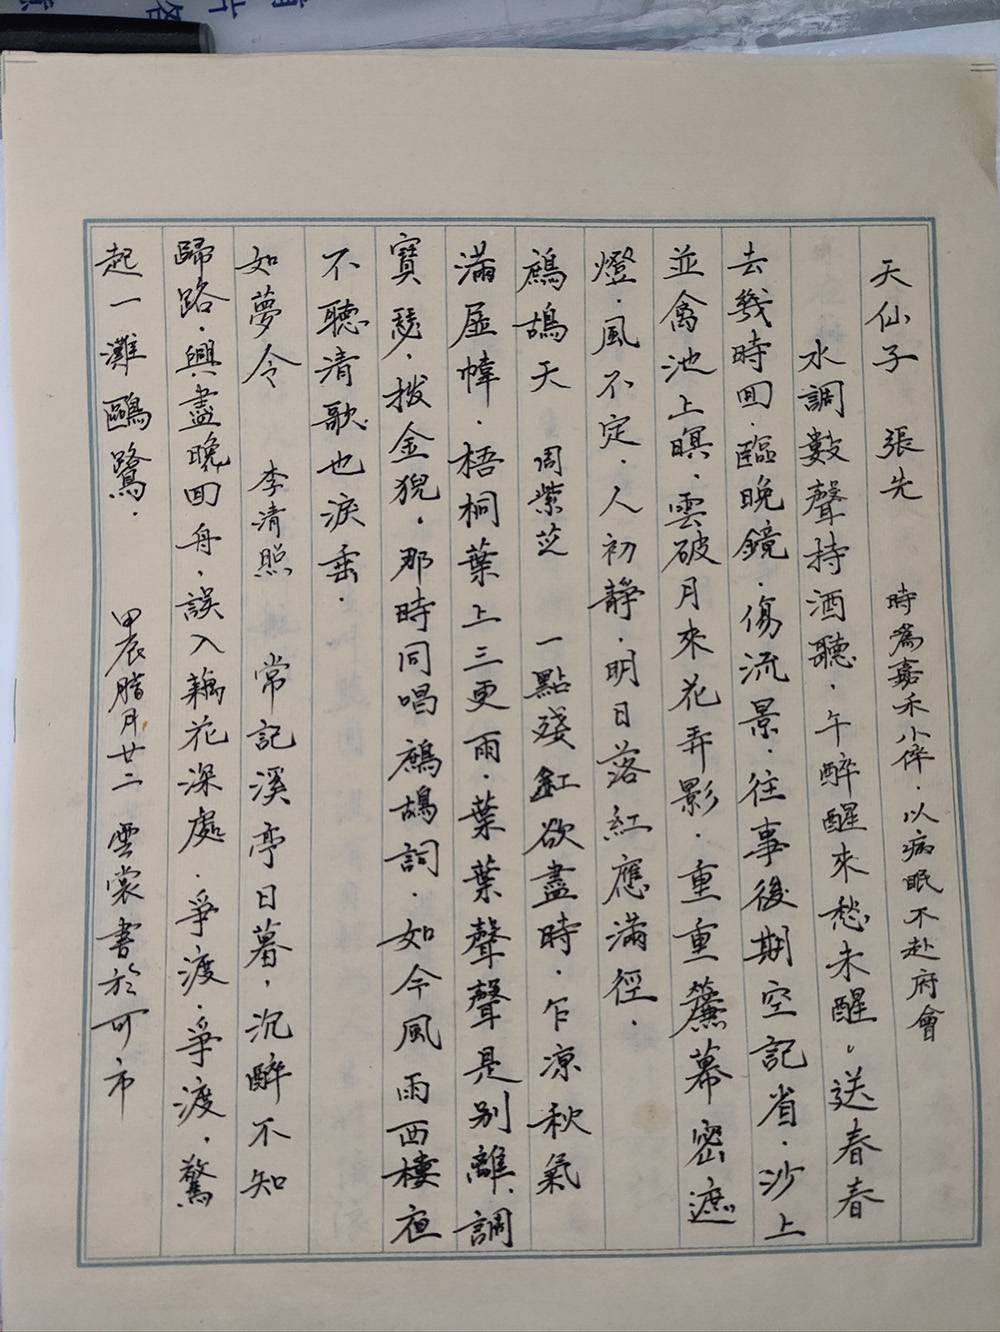 天仙子 張先 時爲嘉禾小倅．以病眠不赴府會
水調數聲持酒聽．午醉醒來愁未醒．送春春
去幾時回．臨晚鏡．傷流景．往事後期空記省．沙上
並禽池上暝．雲破月來花弄影．重重簾幕密遮
燈．風不定．人初靜．明日落紅應滿徑．
鷓鴣天 周紫芝 一點殘釭欲盡時．乍涼秋氣
滿屏幃．梧桐葉上三更雨．葉葉聲聲是別離．調
寶瑟．撥金猊．那時同唱鷓鴣詞．如今風雨西樓夜
不聽清歌也淚垂．
如夢令 李清照 常記溪亭日暮．沉醉不知
歸路．興盡晚回舟．誤入藕花深處．爭渡．爭渡．驚
起一灘鷗鷺． 甲辰腊月廿二 雲裳書於可市